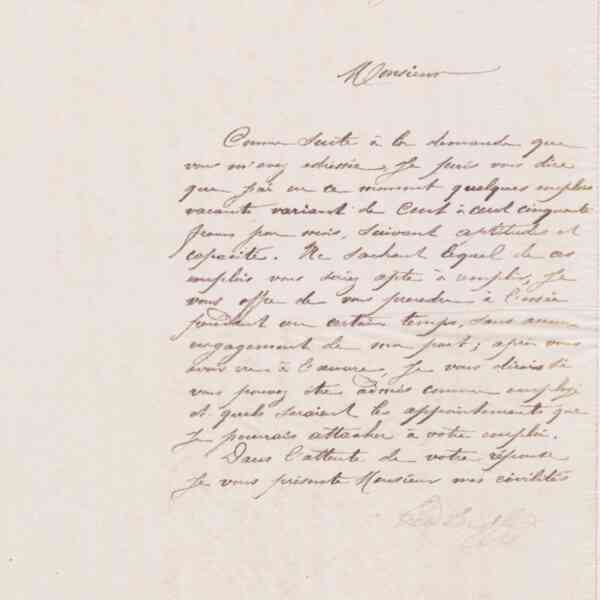 Monsieur
Comme suite à la demande que
vous m'avez adressée, Je puis vous dire
que j'ai en ce moment quelques emplois
vacants variant de Cent à cent cinquante
francs par mois, suivant aptitudes et
capacité. Ne sachant lequel de ces
emplois vous soiez apte à remplir, Je
vous offre de vous prendre à l'essai
pendant un certain temps, sans aucun
engagement de ma part; après vous
avoir vu à l'œuvre, Je vous dirais si
vous pouvez être admis comme employé
et quels seraient les appointements que
Je pourrais attacher à votre emploi.
Dans l'attente de votre réponse
Je vous présente Monsieur mes civilités